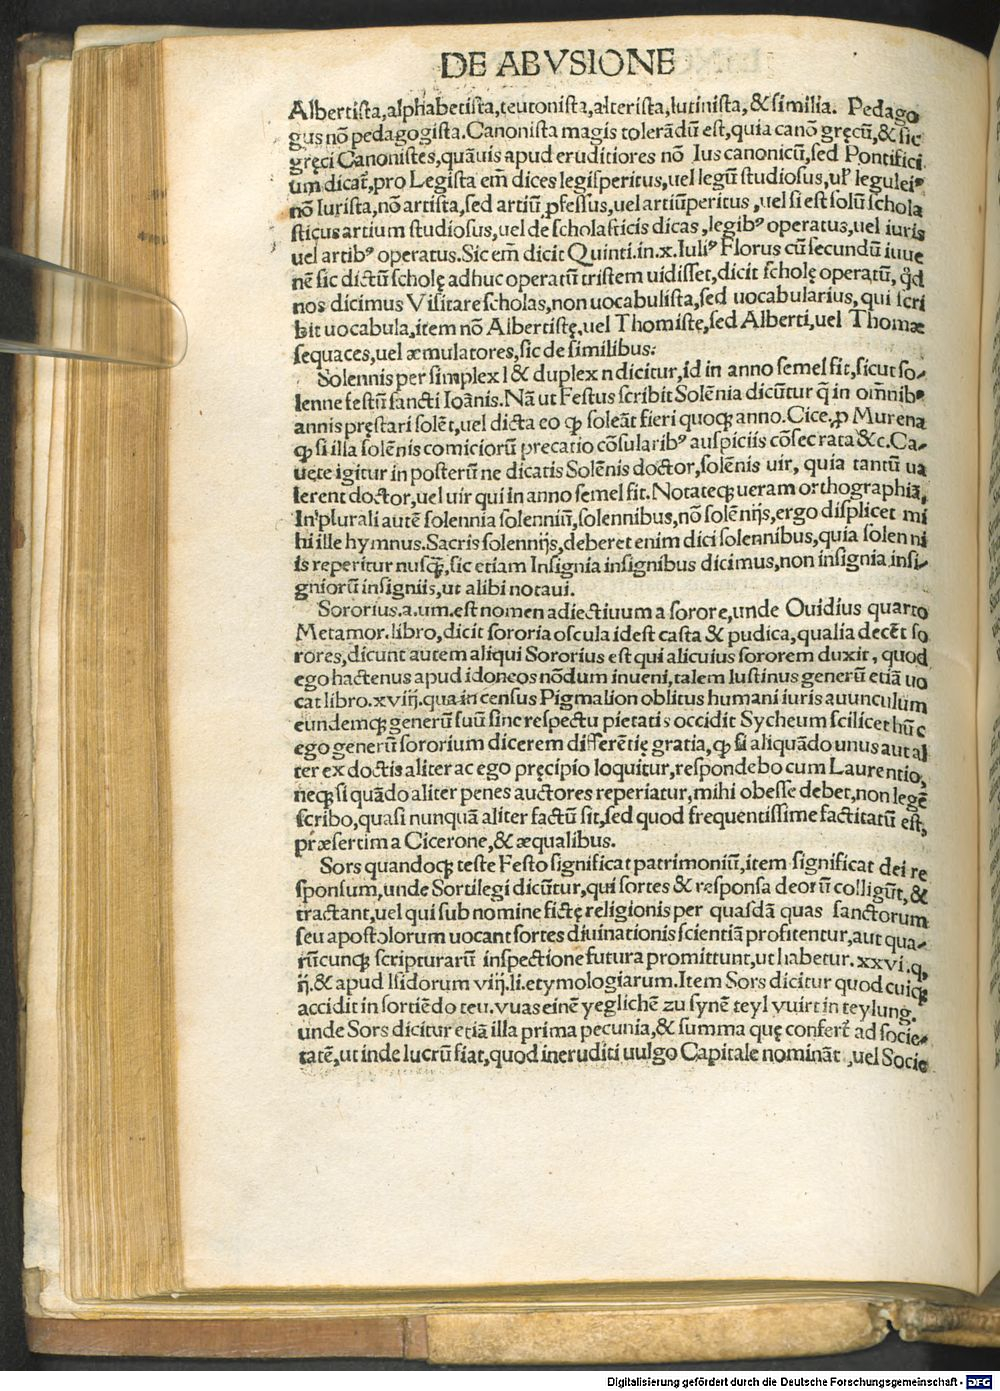 DE ABVSIONE
Albertista,alphabetista,teutonista,alterista,lutinista,& similia. Pedago
gus nõ pedagogista.Canonista magis tolerãdũ est,quia canõ gręcũ,& sic
gręci Canonistes,quãuis apud eruditiores nõ Ius canonicũ,sed Pontifici
um dicat̃,pro Legista em̃ dices legisperitus,uel legũ studiosus,ul' legulei⁹
nõ Iurista,nõ artista,sed artiũ ꝓfessus,uel artiũperitus,uel si est solũ schola
sticus artium studiosus,uel de scholasticis dicas,legib⁹ operatus,uel iuris
uel artib⁹ operatus.Sic em̃ dicit Quinti.in.x.Iuli⁹ Florus cũ secundũ iuue
nẽ sic dictũ scholę adhuc operatũ tristem uidisset,dicit scholę operatũ, qđ
nos dicimus Visitare scholas,non uocabulista,sed uocabularius, qui scri
bit uocabula,item nõ Albertistę,uel Thomistę,sed Alberti,uel Thomæ
sequaces,uel æmulatores,sic de similibus:
Solennis per simplex l & duplex n dicitur,id in anno semel fit,sicut so-
lenne festũ sancti Ioãnis.Nã ut Festus scribit Solẽnia dicũtur q̃ in om̃nib⁹
annis pręstari solẽt,uel dicta eo ꝙ soleãt fieri quoqꝫ anno.Cice.ꝓ Murena
ꝙ si illa solẽnis comiciorũ precatio cõsularib⁹ auspiciis cõsecrata &c.Ca-
uete igitur in posterũ ne dicatis Solẽnis doctor,solẽnis uir, quia tantũ ua
lerent doctor,uel uir qui in anno semel fit.Notateqꝫ ueram orthographiã,
In plurali autẽ solennia solenniũ,solennibus,nõ solẽnijs,ergo displicet mi
hi ille hymnus.Sacris solennijs,deberet enim dici solennibus,quia solenni
is reperitur nusq̃,sic etiam Insignia insignibus dicimus,non insignia insi-
gniorũ insigniis,ut alibi notaui.
Sororius.a.um.est nomen adiectiuum a sorore,unde Ouidius quarto
Metamor.libro,dicit sororia oscula idest casta & pudica,qualia decẽt so
rores,dicunt autem aliqui Sororius est qui alicuius sororem duxit, quod
ego hactenus apud idoneos nõdum inueni,talem Iustinus generũ etiã uo
cat libro.xviij.qua incensus Pigmalion oblitus humani iuris auunculum
eundemqꝫ generũ suũ sine respectu pietatis occidit Sycheum scilicet hũc
ego generũ sororium dicerem differẽtię gratia,ꝙ si aliquãdo unus aut al
ter ex doctis aliter ac ego pręcipio loquitur,respondebo cum Laurentio,
neqꝫ si quãdo aliter penes auctores reperiatur,mihi obesse debet,non legẽ
scribo,quasi nunquã aliter factũ sit,sed quod frequentissime factitatũ est,
præsertim a Cicerone,& æqualibus.
Sors quandoqꝫ teste Festo significat patrimoniũ,item significat dei re
sponsum,unde Sortilegi dicũtur,qui sortes & responsa deorũ colligũt,&
tractant,uel qui sub nomine fictę religionis per quasdã quas sanctorum
seu apostolorum uocant sortes diuinationis scientiã profitentur,aut qua-
rũcunqꝫ scripturarũ inspectione futura promittunt,ut habetur.xxvi.q,
ij.& apud Isidorum viij.li.etymologiarum.Item Sors dicitur quod cuiqꝫ
accidit in sortiẽdo teu.vuas einẽ yeglichẽ zu synẽ teyl vuirt in teylung.
unde Sors dicitur etiã illa prima pecunia,& summa quę confert̃ ad socie-
tatẽ,ut inde lucrũ fiat,quod ineruditi uulgo Capitale nominãt,uel Socie
Digitalisierung gefördert durch die Deutsche Forschungsgemeinschaft - DFG